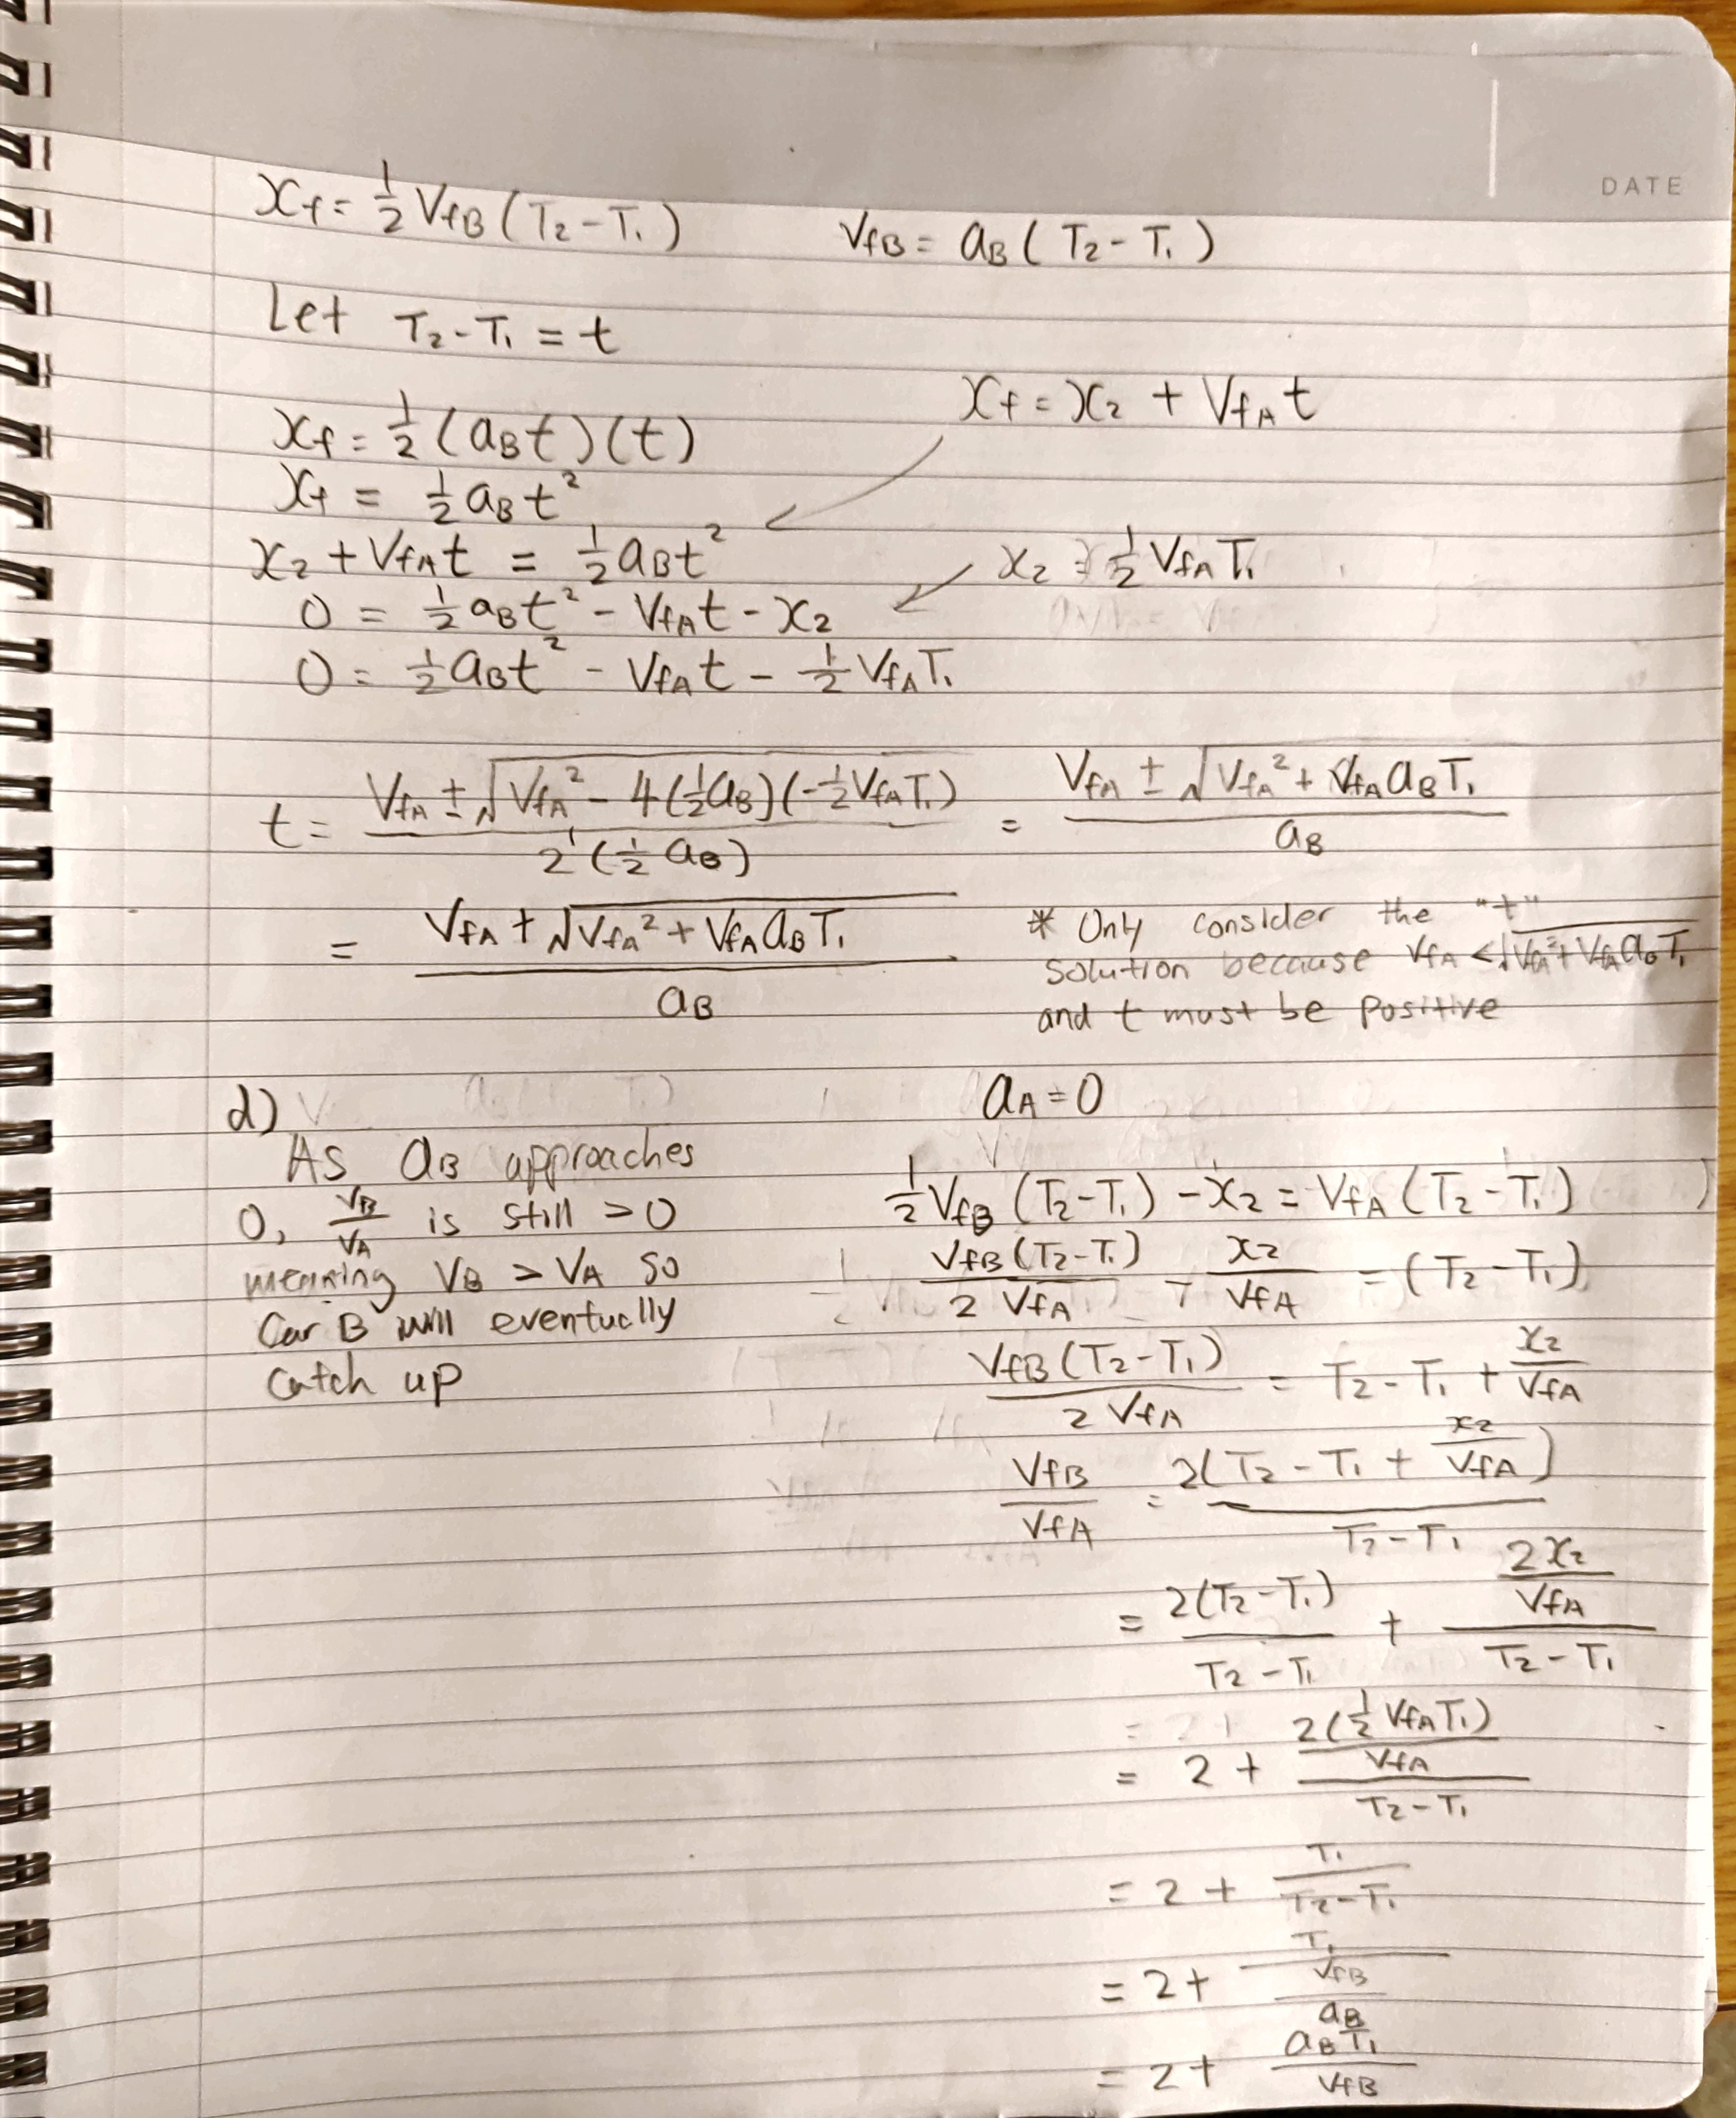 DATE
x_f = 1/2 V_fB (T_2 - T_1)    V_fB = a_B (T_2 - T_1)
Let T_2 - T_1 = t
x_f = x_2 + V_fA t
x_f = 1/2 (a_B t)(t)
x_f = 1/2 a_B t^2
x_2 + V_fA t = 1/2 a_B t^2    x_2 = 1/2 V_fA T_1
0 = 1/2 a_B t^2 - V_fA t - x_2
0 = 1/2 a_B t^2 - V_fA t - 1/2 V_fA T_1
t = (V_fA ± √(V_fA^2 - 4(1/2 a_B)(-1/2 V_fA T_1))) / (2(1/2 a_B)) = (V_fA ± √(V_fA^2 + V_fA a_B T_1)) / a_B
= (V_fA + √(V_fA^2 + V_fA a_B T_1)) / a_B
* Only consider the "+"
solution because V_fA < √(V_fA^2 + V_fA a_B T_1)
and t must be positive
d)
As a_B approaches
0, V_B/V_A is still > 0
meaning V_B > V_A so
Car B will eventually
catch up
a_A = 0
1/2 V_fB (T_2 - T_1) - x_2 = V_fA (T_2 - T_1)
V_fB (T_2 - T_1) / (2 V_fA) - x_2 / V_fA = (T_2 - T_1)
V_fB (T_2 - T_1) / (2 V_fA) = T_2 - T_1 + x_2 / V_fA
V_fB / V_fA = 2(T_2 - T_1 + x_2 / V_fA) / (T_2 - T_1)
= 2(T_2 - T_1) / (T_2 - T_1) + (2x_2 / V_fA) / (T_2 - T_1)
= 2 + (2(1/2 V_fA T_1) / V_fA) / (T_2 - T_1)
= 2 + T_1 / (T_2 - T_1)
= 2 + T_1 / (V_fB / a_B)
= 2 + a_B T_1 / V_fB